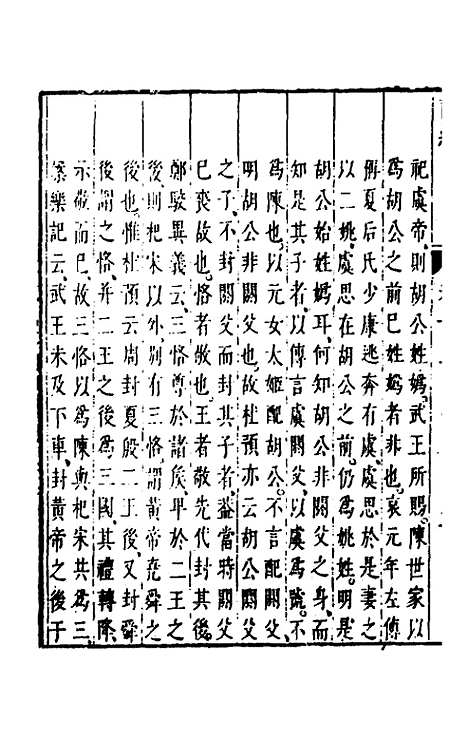 祀虞帝、則胡公姓嬀、武王所賜、陳世家以
爲胡公之前已姓嬀者非也、哀元年左傳
稱夏后氏少康逃奔有虞、虞思於是妻之
以二姚、虞思在胡公之前、仍爲姚姓、明是
胡公始姓嬀耳、何知胡公非閼父之身、而
知是其子者、以傳言虞閼父、以虞爲號、不
爲陳也、以元女太姬配胡公、不言配閼父、
明胡公非閼父也、故杜預亦云胡公閼父
之子、不封閼父而封其子者、蓋當時閼父
已喪故也、恪者敬也、王者敬先代封其後、
鄭駮異義云、三恪尊於諸矦、卑於二王之
後、則杞宋以外、別有三恪、謂黃帝堯舜之
後也、惟杜預云周封夏殷二王後、又封舜
後、謂之恪、并二王之後爲三國、其禮轉降、
示敬而已、故三恪以爲陳與杞宋共爲三
案樂記云武王未及下車、封黃帝之後于